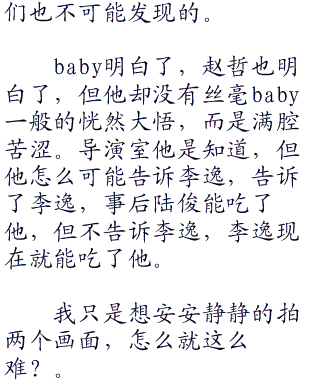 们也不可能发现的。
baby明白了，赵哲也明
白了，但他却没有丝毫baby
一般的恍然大悟，而是满腔
苦涩。导演室他是知道，但
他怎么可能告诉李逸，告诉
了李逸，事后陆俊能吃了
他，但不告诉李逸，李逸现
在就能吃了他。
我只是想安安静静的拍
两个画面，怎么就这么
难？。